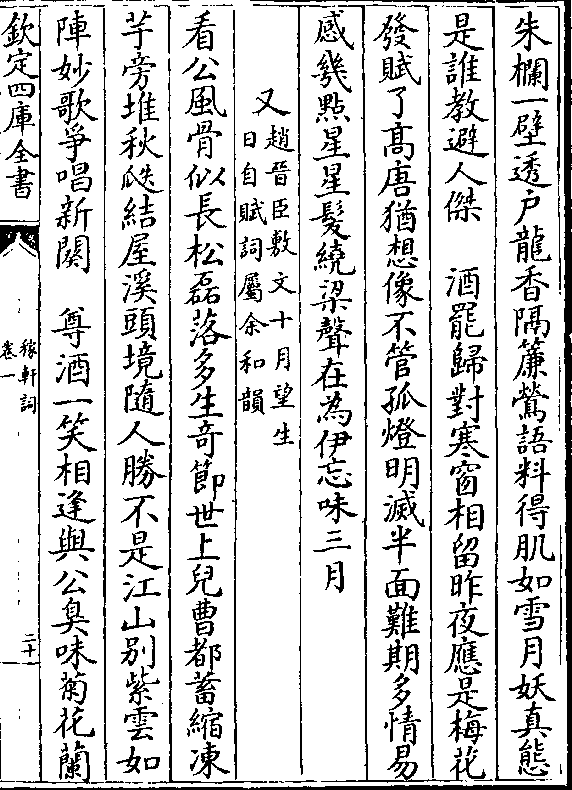 朱欄一壁透户龍香隔簾鶯語料得肌如雪月妖真態
是誰教避人傑　酒罷歸對寒窗相留昨夜應是梅花
發賦了髙唐猶想像不管孤燈明滅半面難期多情易
感幾點星星髮繞梁聲在為伊忘味三月
又
趙晉臣敷文十月望生
日自賦詞屬余和韻
看公風骨似長松磊落多生奇節世上兒曹都蓄縮凍
芋旁堆秋瓞結屋溪頭境隨人勝不是江山别紫雲如
陣妙歌爭唱新闋　尊酒一笑相逢與公臭味菊花蘭
欽定四庫全書
稼軒詞
卷一
二十